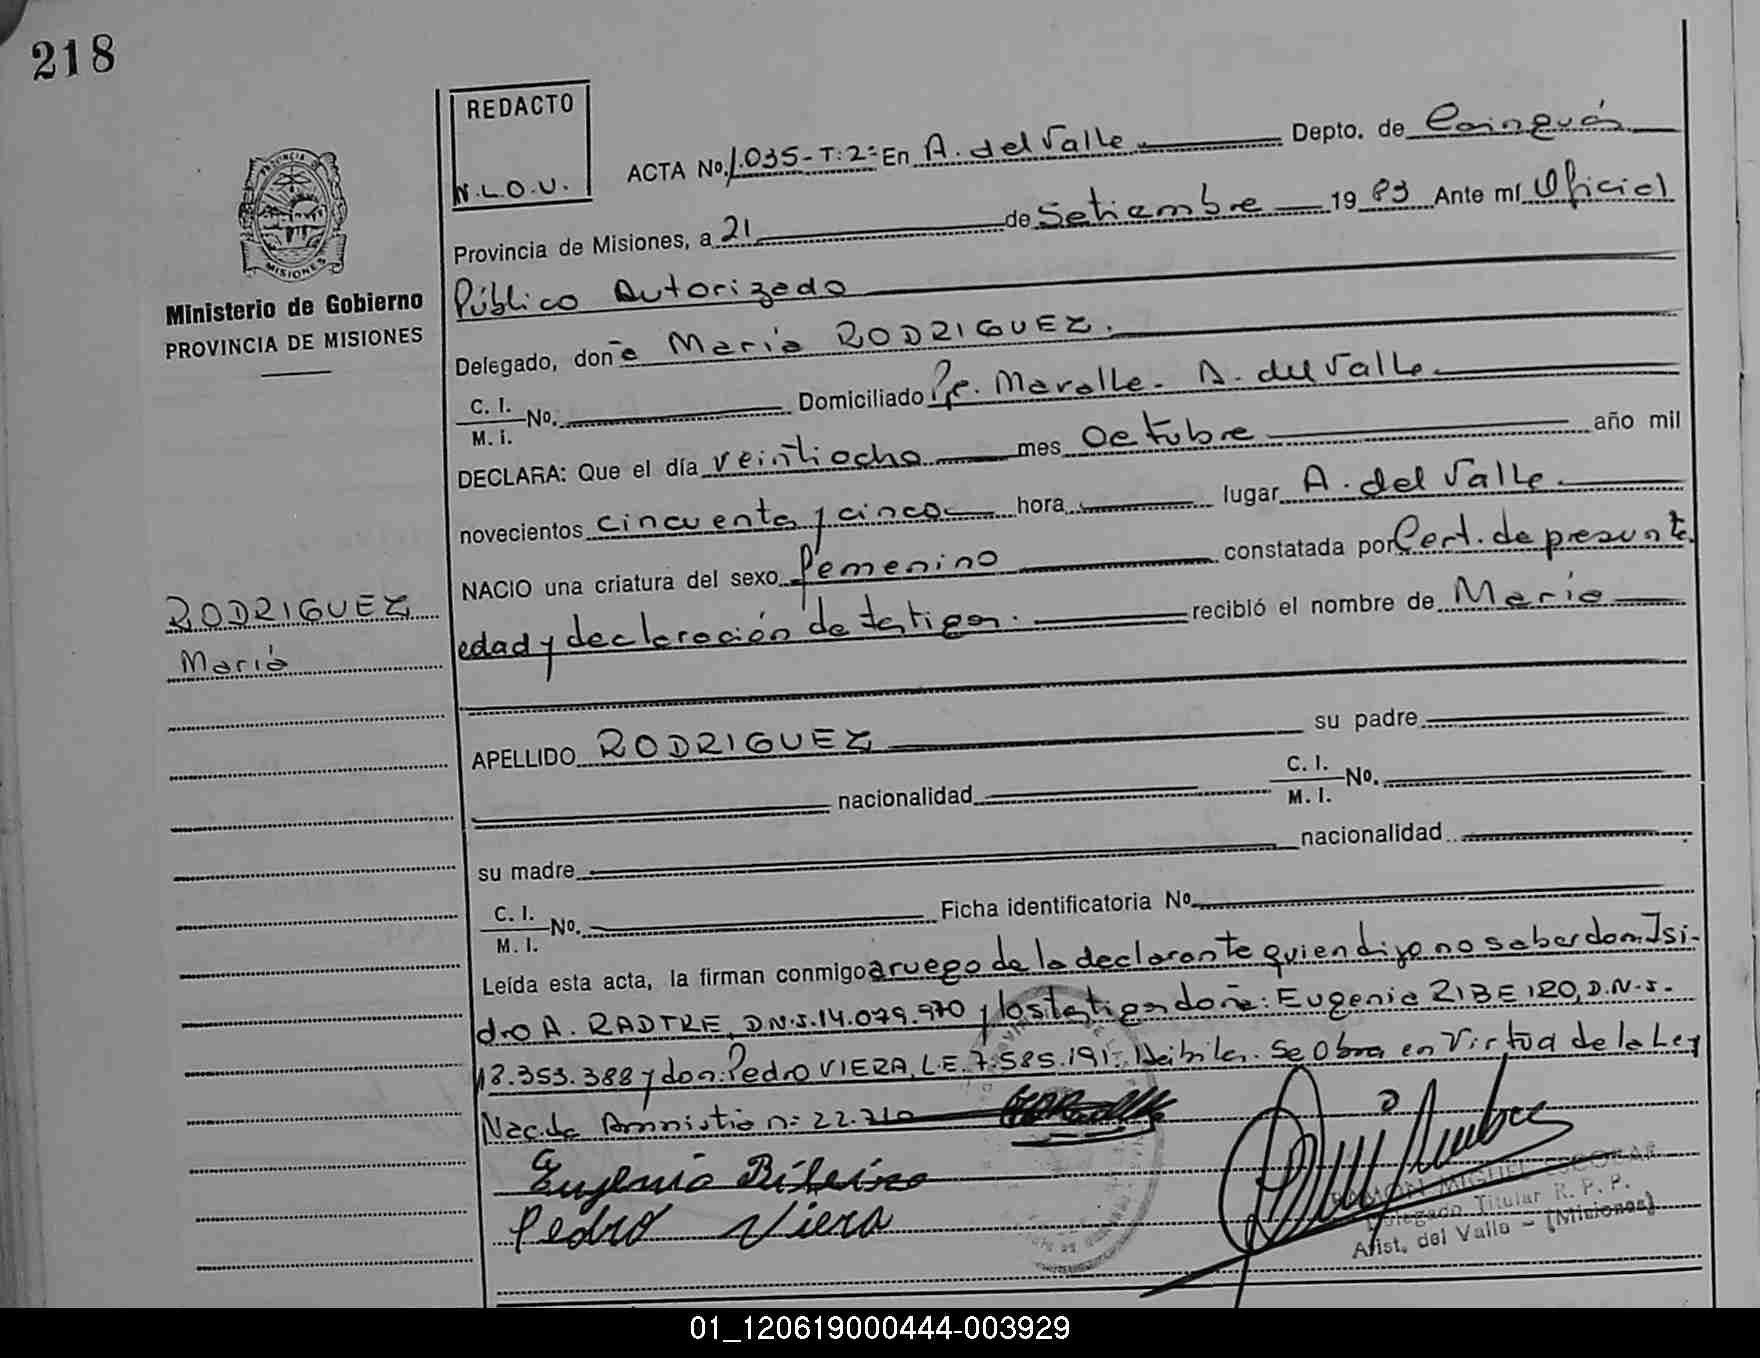 218
REDACTO
N.L.O.U.
ACTA No. 1.035-T:2: En A. del Valle Depto. de Cainguás
Provincia de Misiones, a 21 de Setiembre 19 89 Ante mí Oficial
Público Autorizado
PROVINCIA DE MISIONES
Ministerio de Gobierno
PROVINCIA DE MISIONES
Delegado, doña María RODRIGUEZ.
C. I.
M. I.
No. Domiciliado Pje. Maralle. A. del Valle
DECLARA: Que el día veintiocho mes Octubre año mil
novecientos cincuenta y cinco hora lugar A. del Valle.
NACIO una criatura del sexo femenino constatada por Cert. de presunta
edad y declaración de testigos. recibió el nombre de María
RODRIGUEZ
María
APELLIDO RODRIGUEZ su padre
nacionalidad C. I.
M. I. No.
su madre nacionalidad
C. I.
M. I. No. Ficha identificatoria No.
Leída esta acta, la firman conmigo a ruego de la declarante quien dijo no saber don: Isi-
dro A. RADTKE, D.N.I. 14.079.970 y los testigos doña: Eugenia RIBEIRO, D.N.I.
18.353.388 y don: Pedro VIERA, L.E. 7.585.191: Hábiles. Se Obra en Virtud de la Ley
Nac. de Amnistía n: 22.710
Eugenia Ribeiro
Pedro Viera
RAMON MIGUEL ESCOBAR
Delegado Titular R. P. P.
Arist. del Valle - (Misiones)
01_120619000444-003929